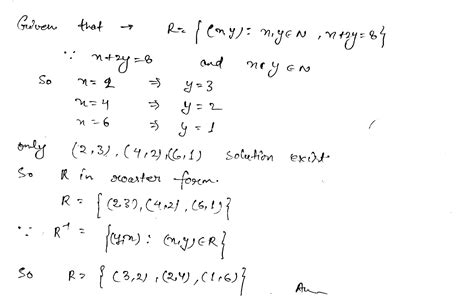 Given that → R = { (x y) : x, y ∈ N , x + 2y = 8 }
∵ x + 2y = 8 and x, y ∈ N
So x = 2 ⇒ y = 3
x = 4 ⇒ y = 2
x = 6 ⇒ y = 1
only (2,3), (4,2), (6,1) solution exist.
So R in roaster form.
R = { (2 3), (4,2), (6,1) }
∵ R⁻¹ = { (y, x) : (x, y) ∈ R }
So R = { (3,2), (2,4), (1,6) } Ans